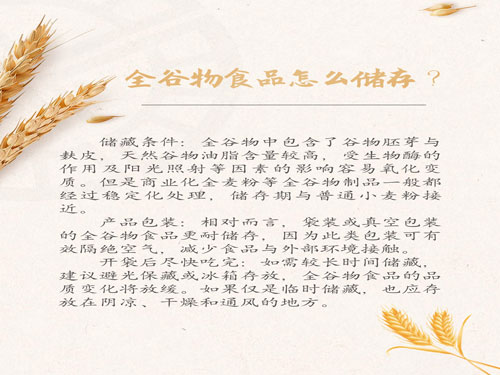 全谷物食品怎么储存？
储藏条件：全谷物中包含了谷物胚芽与
麸皮，天然谷物油脂含量较高，受生物酶的
作用及阳光照射等因素的影响容易氧化变
质。但是商业化全麦粉等全谷物制品一般都
经过稳定化处理，储存期与普通小麦粉接
近。
产品包装：相对而言，袋装或真空包装
的全谷物食品更耐储存，因为此类包装可有
效隔绝空气，减少食品与外部环境接触。
开袋后尽快吃完：如需较长时间储藏，
建议避光保藏或冰箱存放，全谷物食品的品
质变化将放缓。如果仅是临时储藏，也应存
放在阴凉、干燥和通风的地方。